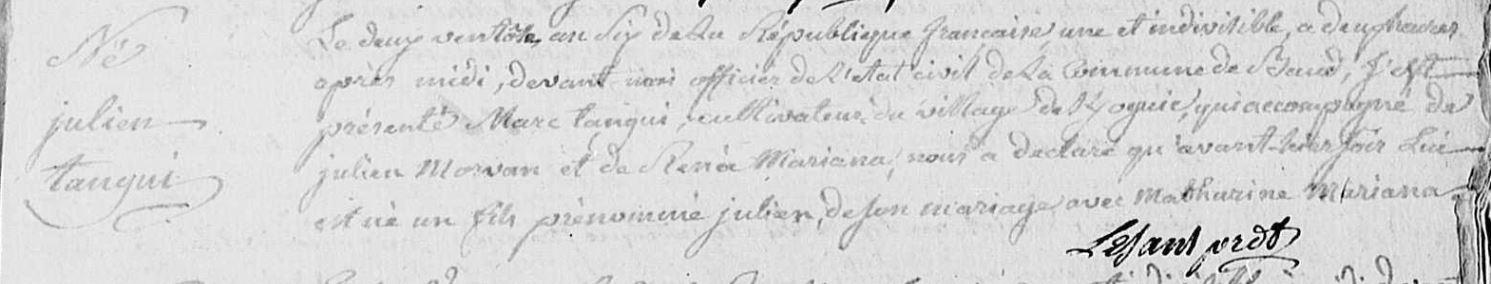 Né
julien
tangui
Le deux ventôse, an Six de La République française, une et indivisible, a deux heures
après midi, devant nous officier de L'etat civil de La Commune de Baud, s'est
présenté Marc tangui, cultivateur du village de qui accompagné de
julien Morvan et de Renée Mariana, nous a declaré qu'avant-hier soir Lui
est né un fils prénommé julien, de son mariage avec Mathurine Mariana.